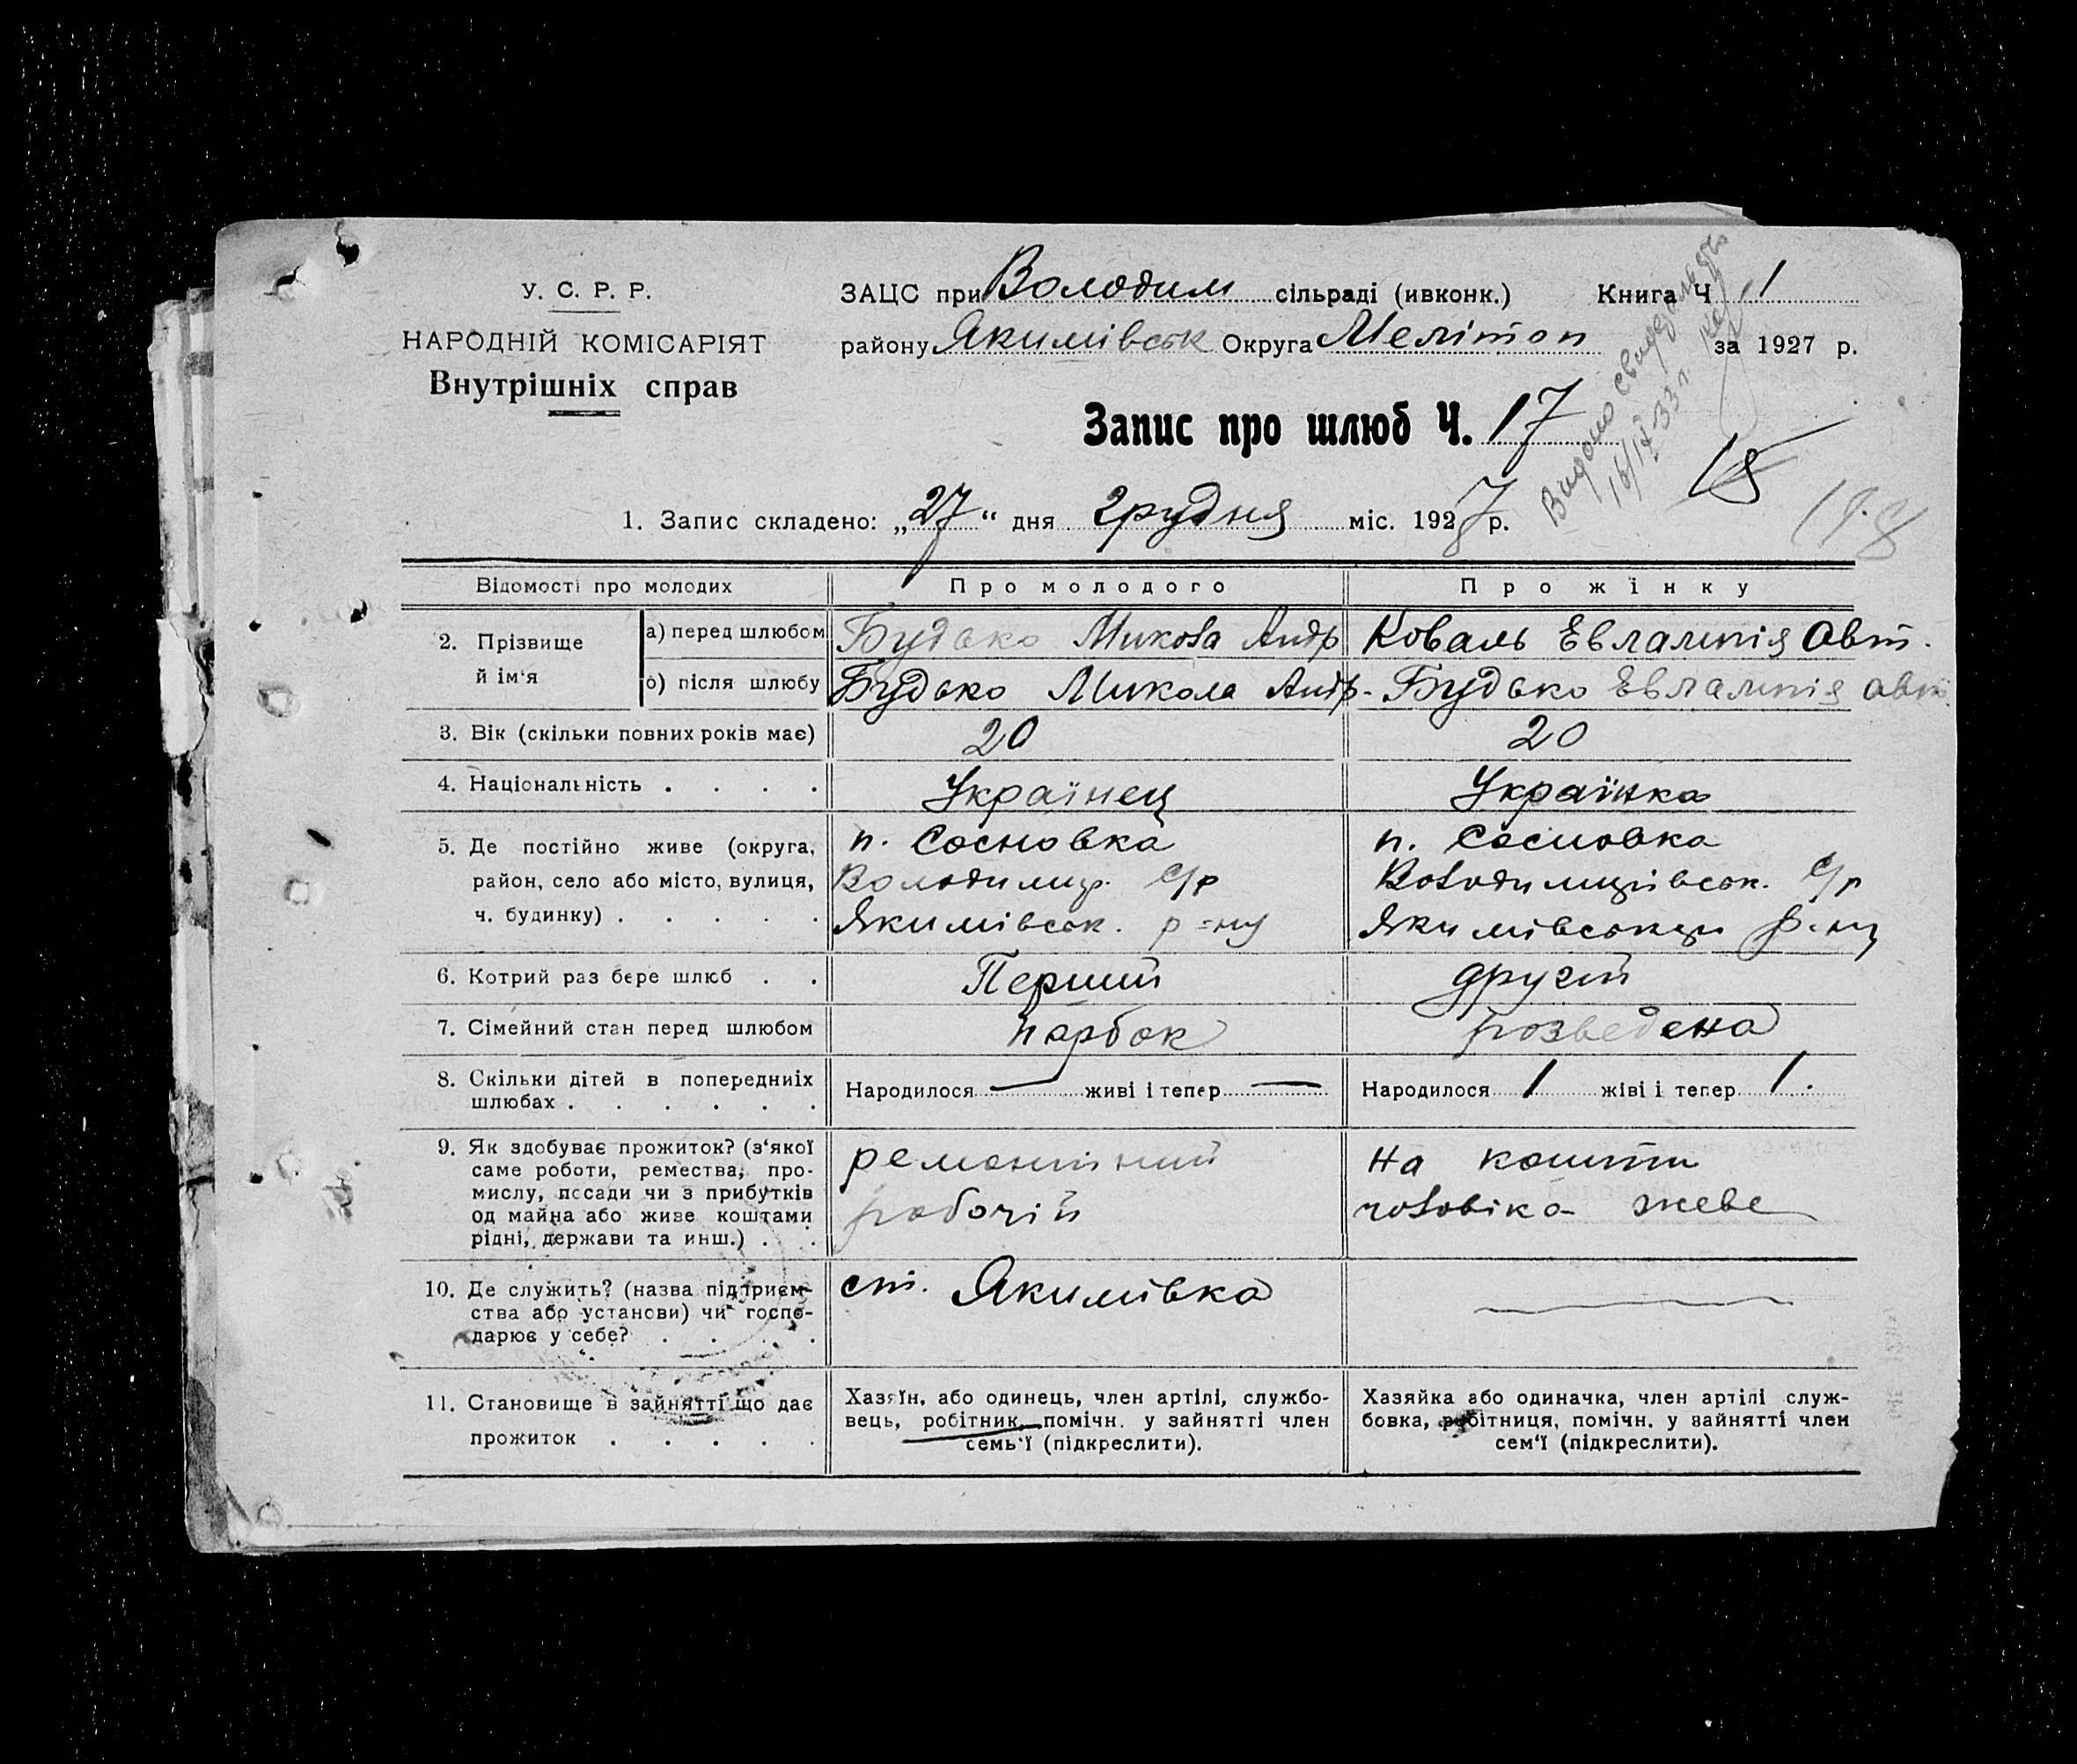 У. С. Р. Р.
НАРОДНІЙ КОМІСАРІЯТ
Внутрішніх справ
ЗАЦС при Володим сільраді (ивконк.) Книга Ч 1
району Якимівськ Округа Мелітоп за 1927 р.
Запис про шлюб Ч. 17
Видано свидетельство
18
1. Запис складено: „27“ дня грудня міс. 1927 р.
Відомості про молодих Про молодого Про жінку
2. Прізвище й ім‘я
а) перед шлюбом Будько Микола Андр Коваль Евлампія Авт.
б) після шлюбу Будько Микола Андр- Будько Евлампія авт.
3. Вік (скільки повних років має) 20 20
4. Національність . . . . Українец Українка
5. Де постійно живе (округа, п. Сосновка п. Сосновка
район, село або місто, вулиця, Володимир. С/р Володимирівськ. С/р
ч. будинку) . . . . . Якимівськ. р=ну Якимівськи р-ну
6. Котрий раз бере шлюб . . Перший другий
7. Сімейний стан перед шлюбом парбок розведена
8. Скільки дітей в попередниіх Народилося — живі і тепер — Народилося 1 жіві і тепер 1.
шлюбах . . . . . .
9. Як здобуває прожиток? (з‘якої ремонтний На кошти
саме роботи, ремества, про-
мислу, посади чи з прибутків робочій чоловіка жеве
од майна або живе коштами
рідні, держави та инш.) . .
10. Де служить? (назва підприєм- ст. Якимівка —
ства або установи) чи госпо-
дарює у себе? . . . .
11. Становище в зайнятті що дає Хазяїн, або одинець, член артілі, службо- Хазяйка або одиначка, член артілі служ-
вець, робітник, помічн. у зайнятті член бовка, робітниця, помічн. у зайнятті член
прожиток . . . . . семь‘ї (підкреслити). сем‘ї (підкреслити).